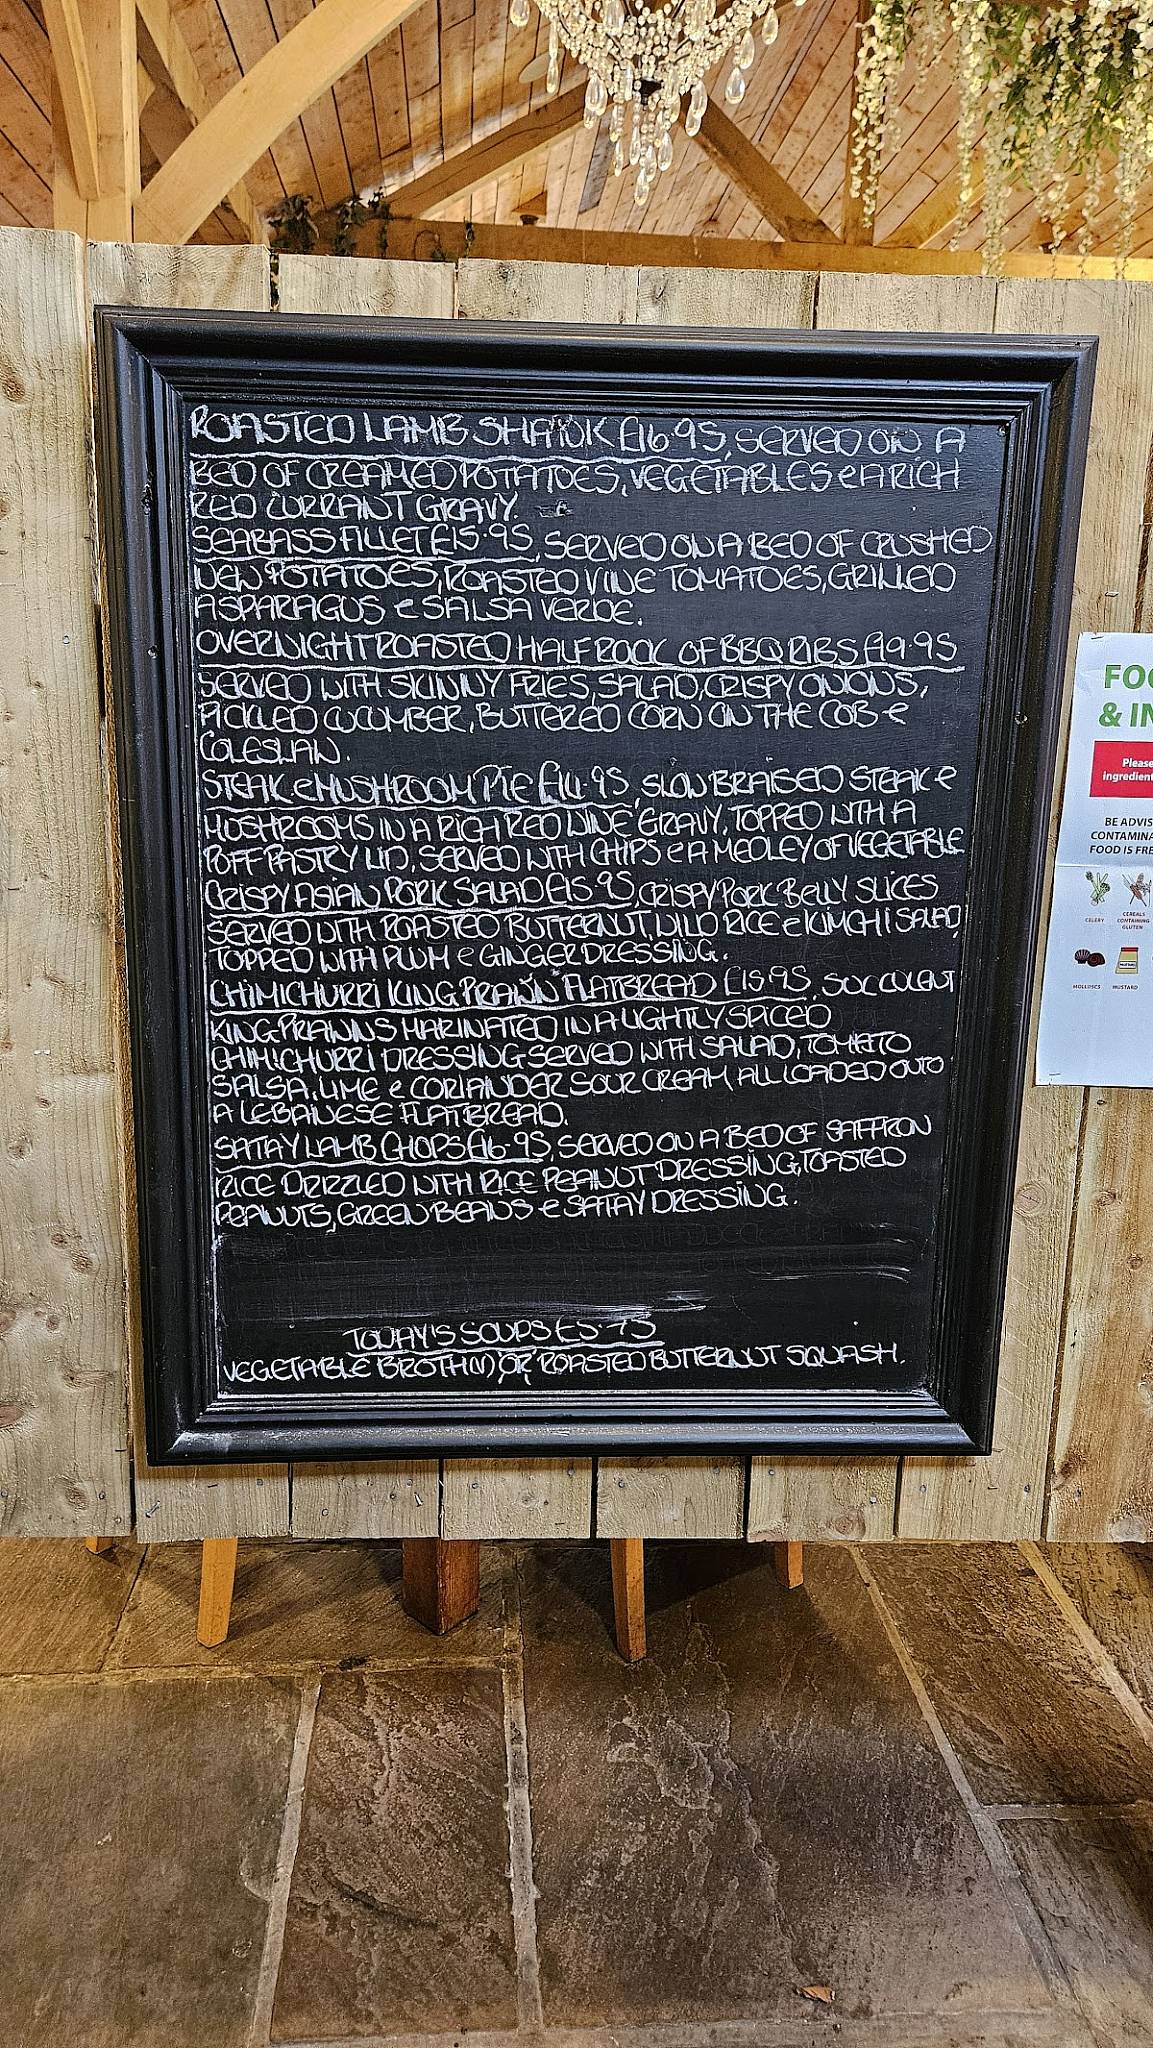 ROASTED LAMB SHANK £16.95, SERVED ON A
BED OF CREAMED POTATOES, VEGETABLES & A RICH
RED CURRANT GRAVY.
SEABASS FILLET £15.95, SERVED ON A BED OF CRUSHED
NEW POTATOES, ROASTED VINE TOMATOES, GRILLED
ASPARAGUS & SALSA VERDE.
OVERNIGHT ROASTED HALF ROCK OF BBQ RIBS £19.95
SERVED WITH SKINNY FRIES, SALAD, CRISPY ONIONS,
PICKLED CUCUMBER, BUTTERED CORN ON THE COB &
COLESLAW.
STEAK & MUSHROOM PIE £14.95, SLOW BRAISED STEAK &
MUSHROOMS IN A RICH RED WINE GRAVY, TOPPED WITH A
PUFF PASTRY LID, SERVED WITH CHIPS & A MEDLEY OF VEGETABLE
CRISPY ASIAN PORK SALAD £15.95, CRISPY PORK BELLY SLICES
SERVED WITH ROASTED BUTTERNUT, WILD RICE & KIMCHI SALAD,
TOPPED WITH PLUM & GINGER DRESSING.
CHIMICHURRI KING PRAWN FLATBREAD £15.95, SUCCULENT
KING PRAWNS MARINATED IN A LIGHTLY SPICED
CHIMICHURRI DRESSING SERVED WITH SALAD, TOMATO
SALSA, LIME & CORIANDER SOUR CREAM ALL LOADED ONTO
A LEBANESE FLATBREAD.
SATAY LAMB CHOPS £16.95, SERVED ON A BED OF SAFFRON
RICE DRIZZLED WITH RICE PEANUT DRESSING, TOASTED
PEANUTS, GREEN BEANS & SATAY DRESSING.
TODAY'S SOUPS £5.75
VEGETABLE BROTH (V) OR ROASTED BUTTERNUT SQUASH.
FOO
& IN
Please
ingredient
BE ADVIS
CONTAMINA
FOOD IS FRE
CELERY
CEREALS
CONTAINING
GLUTEN
MOLLUSCS
MUSTARD